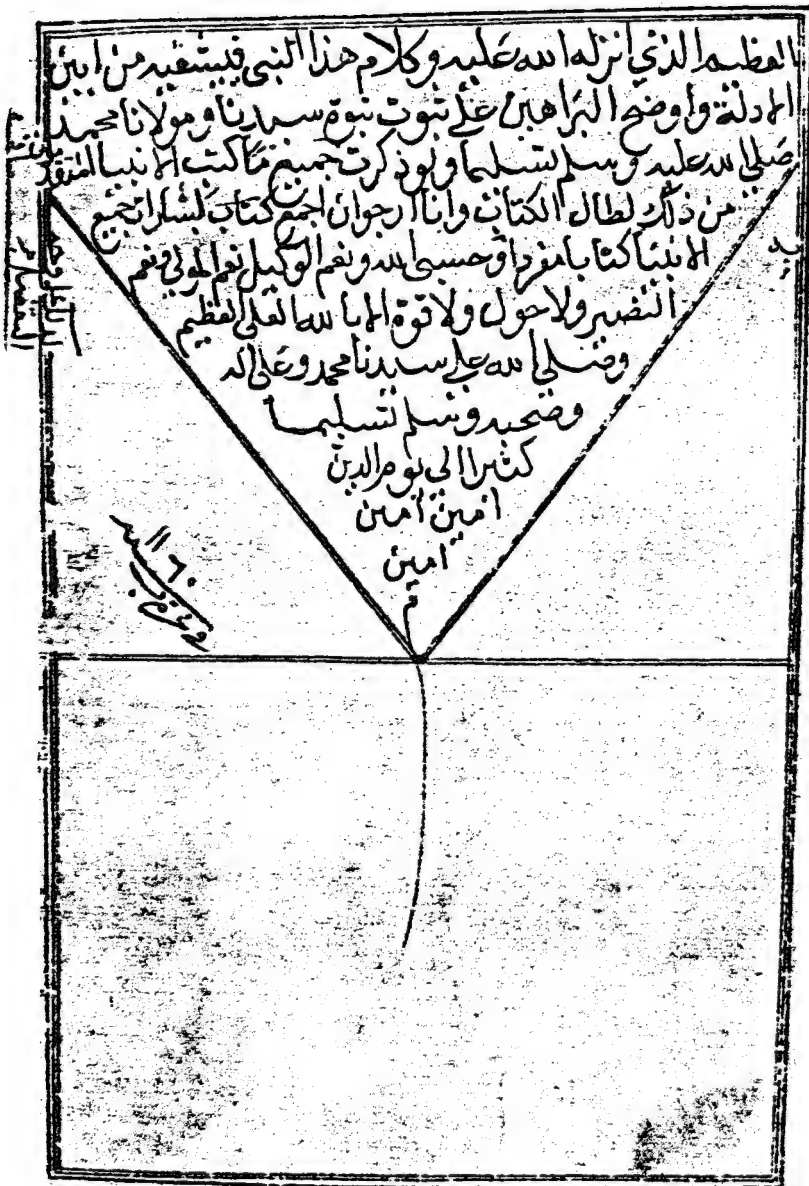 العظيم الذي انزله الله عليه وكلام هذا النبي فيشقيه من ابين
الادلة واوضح البراهين على ثبوت نبوة سيدنا ومولانا محمد
صلى الله عليه وسلم تسليما ولو ذكرت جميع ما كتب الانبيا المتقدمين
من ذلك لطال الكتاب وانا ارجو ان اجمع كتاب بشارات جميع
الانبيا كتابا مفردا وحسبي الله ونعم الوكيل نعم المولى ونعم
النصير ولا حول ولا قوة الا بالله العلي العظيم
وصلى الله على سيدنا محمد وعلى اله
وصحبه وسلم تسليما
كثيرا الى يوم الدين
امين امين
امين
م
١١٦٠